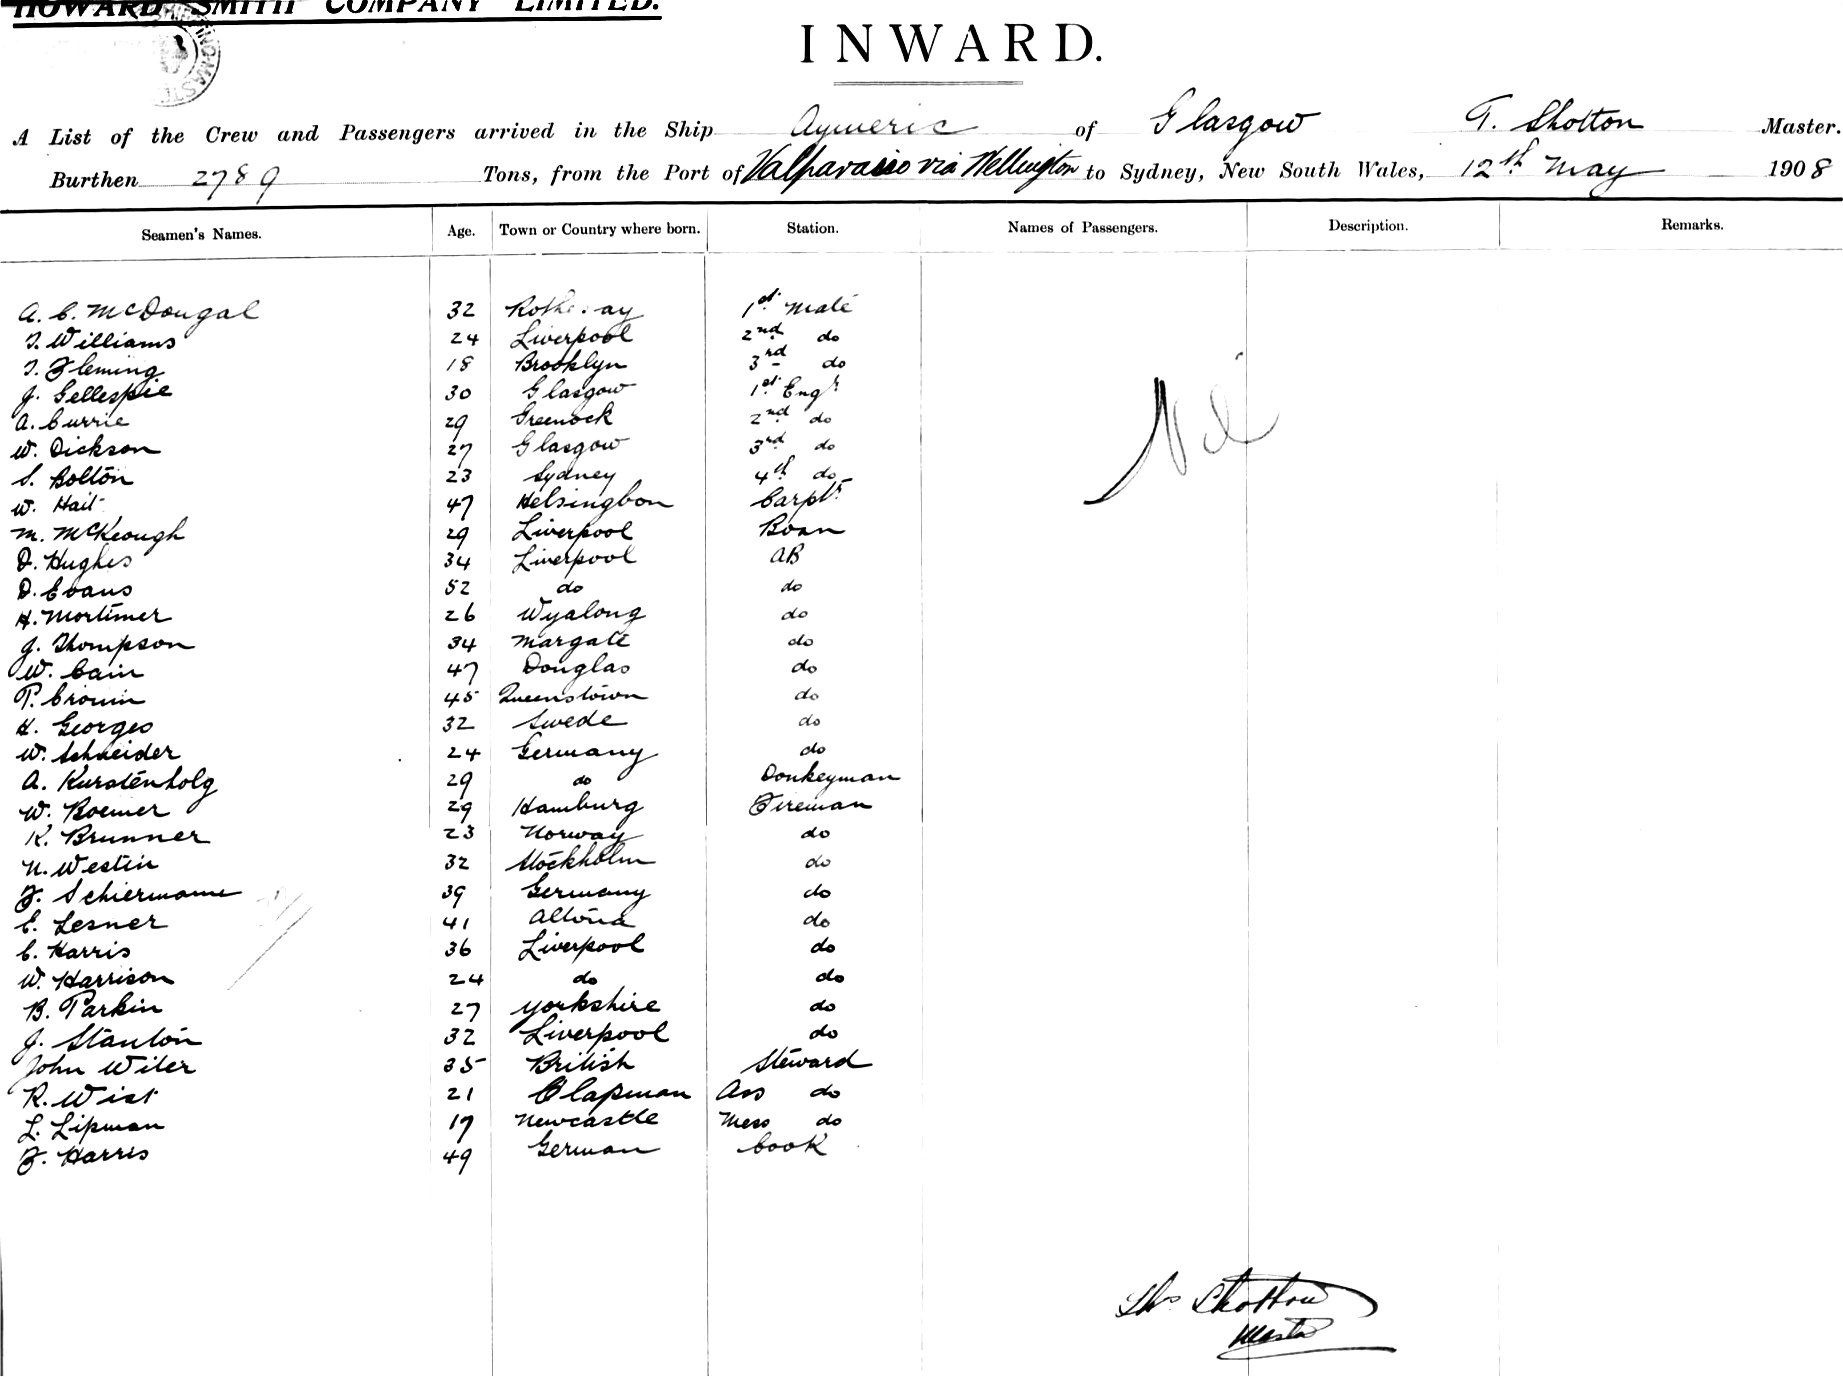 HOWARD SMITH COMPANY LIMITED.
INWARD.
A List of the Crew and Passengers arrived in the Ship Aymeric of Glasgow T. Shotton Master.
Burthen 2789 Tons, from the Port of Valparaiso via Wellington to Sydney, New South Wales, 12th May 1908
Seamen's Names. Age. Town or Country where born. Station. Names of Passengers. Description. Remarks.
A. C. McDougal 32 Rothesay 1st Mate
T. Williams 24 Liverpool 2nd do
T. Fleming 18 Brooklyn 3rd do
J. Gellespie 30 Glasgow 1st Engr
A. Currie 29 Greenock 2nd do
Nil
W. Dickson 27 Glasgow 3rd do
S. Bolton 23 Sydney 4th do
W. Hait 47 Helsingbon Carptr
M. McKeough 29 Liverpool Bosn
D. Hughes 34 Liverpool AB
D. Evans 52 do do
H. Mortimer 26 Wyalong do
J. Thompson 34 Margate do
W. Cain 47 Douglas do
P. Cronin 45 Queenstown do
H. Georges 32 Swede do
W. Schneider 24 Germany do
A. Kurstenholg 29 do Donkeyman
W. Boemer 29 Hamburg Fireman
K. Brunner 23 Norway do
N. Westin 32 Stockholm do
F. Schiermame 39 Germany do
E. Lesner 41 Altona do
C. Harris 36 Liverpool do
W. Harrison 24 do do
B. Parkin 27 Yorkshire do
J. Stanton 32 Liverpool do
John Wiler 35 British Steward
R. Wist 21 Clapman Ass do
L. Lipman 19 Newcastle Mess do
F. Harris 49 German Cook
Thos Shotton
Master